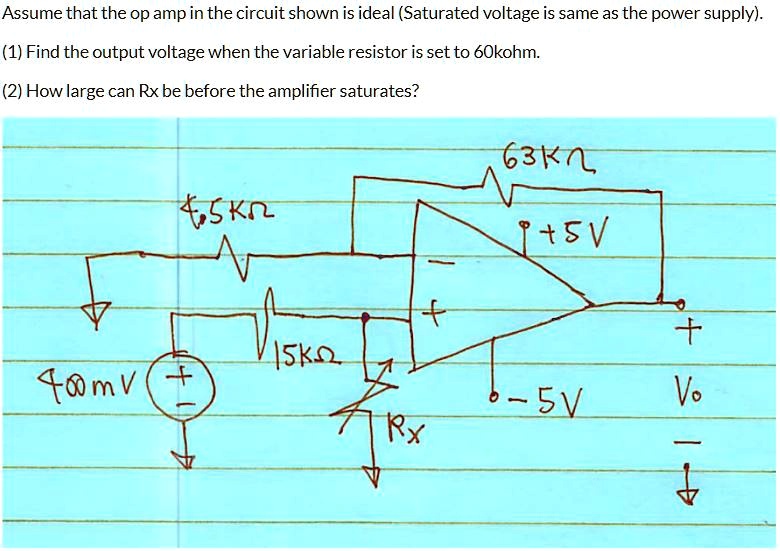 Assume that the op amp in the circuit shown is ideal (Saturated voltage is same as the power supply).
(1) Find the output voltage when the variable resistor is set to 60kohm.
(2) How large can Rx be before the amplifier saturates?
63KΩ
4.5KΩ
+5V
−
+
15KΩ
400mV
+
−
-5V
Rx
+
Vo
−